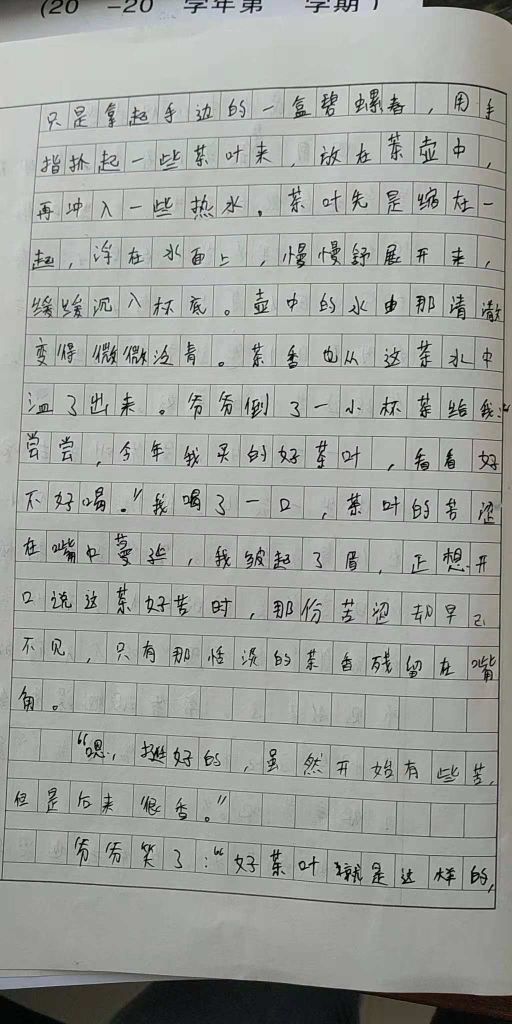 (20 -20 学年第 学期)
只是拿起手边的一盒碧螺春，用手
指扒起一些茶叶来，放在茶壶中，
再冲入一些热水。茶叶先是缩在一
起，浮在水面上，慢慢舒展开来，
缓缓沉入杯底。壶中的水由那清澈
变得微微泛青。茶香也从这茶水中
溢了出来。爷爷倒了一小杯茶给我：“
尝尝，今年我买的好茶叶，看看好
不好喝。”我喝了一口，茶叶的苦涩
在嘴中蔓延，我皱起了眉，正想开
口说这茶好苦时，那份苦涩却早已
不见，只有那恬淡的茶香残留在嘴
角。
“嗯，挺好的，虽然开始有些苦，
但是后来很香。”
爷爷笑了：“好茶叶就是这样的，